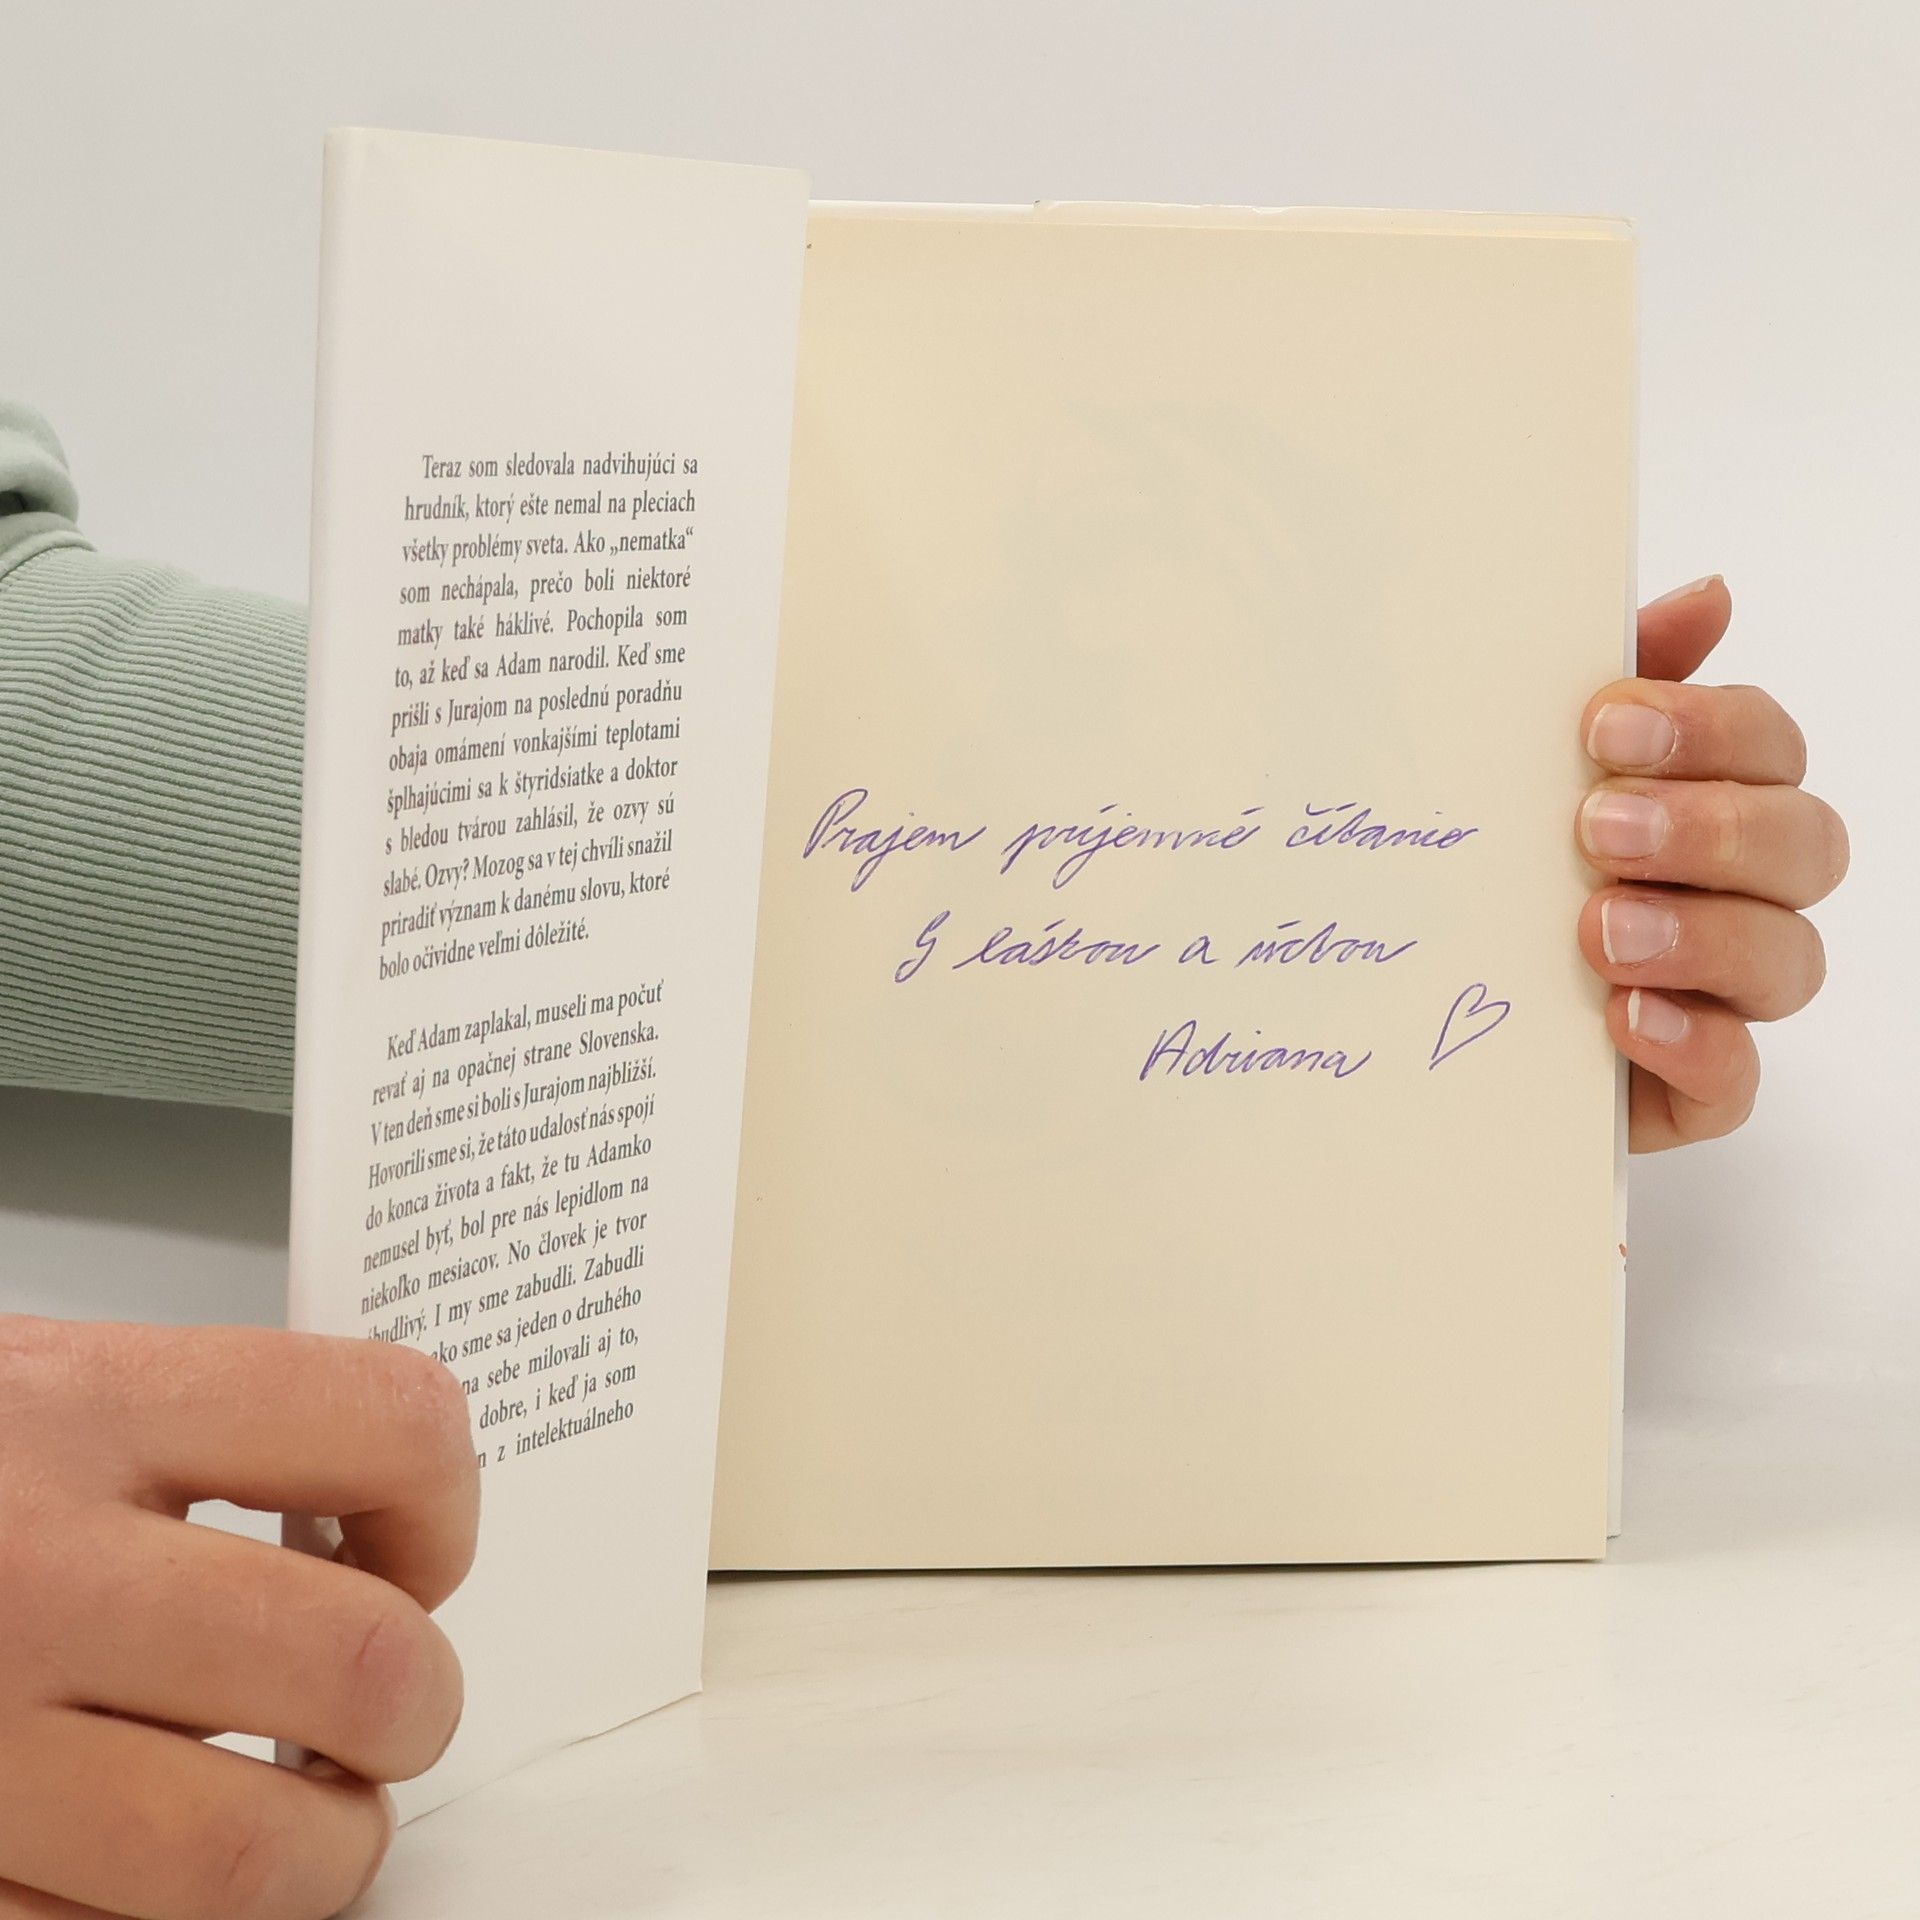 Teraz som sledovala nadvihujúci sa
hrudník, ktorý ešte nemal na pleciach
všetky problémy sveta. Ako „nematka“
som nechápala, prečo boli niektoré
matky také háklivé. Pochopila som
to, až keď sa Adam narodil. Keď sme
prišli s Jurajom na poslednú poradňu
obaja omámení vonkajšími teplotami
šplhajúcimi sa k štyridsiatke a doktor
s bledou tvárou zahlásil, že ozvy sú
slabé. Ozvy? Mozog sa v tej chvíli snažil
priradiť význam k danému slovu, ktoré
bolo očividne veľmi dôležité.
Keď Adam zaplakal, museli ma počuť
revať aj na opačnej strane Slovenska.
V ten deň sme si boli s Jurajom najbližší.
Hovorili sme si, že táto udalosť nás spojí
do konca života a fakt, že tu Adamko
nemusel byť, bol pre nás lepidlom na
niekoľko mesiacov. No človek je tvor
ábudlivý. I my sme zabudli. Zabudli
ako sme sa jeden o druhého
na sebe milovali aj to,
dobre, i keď ja som
n z intelektuálneho
Prajem príjemné čítanie
S láskou a úctou
Adriana